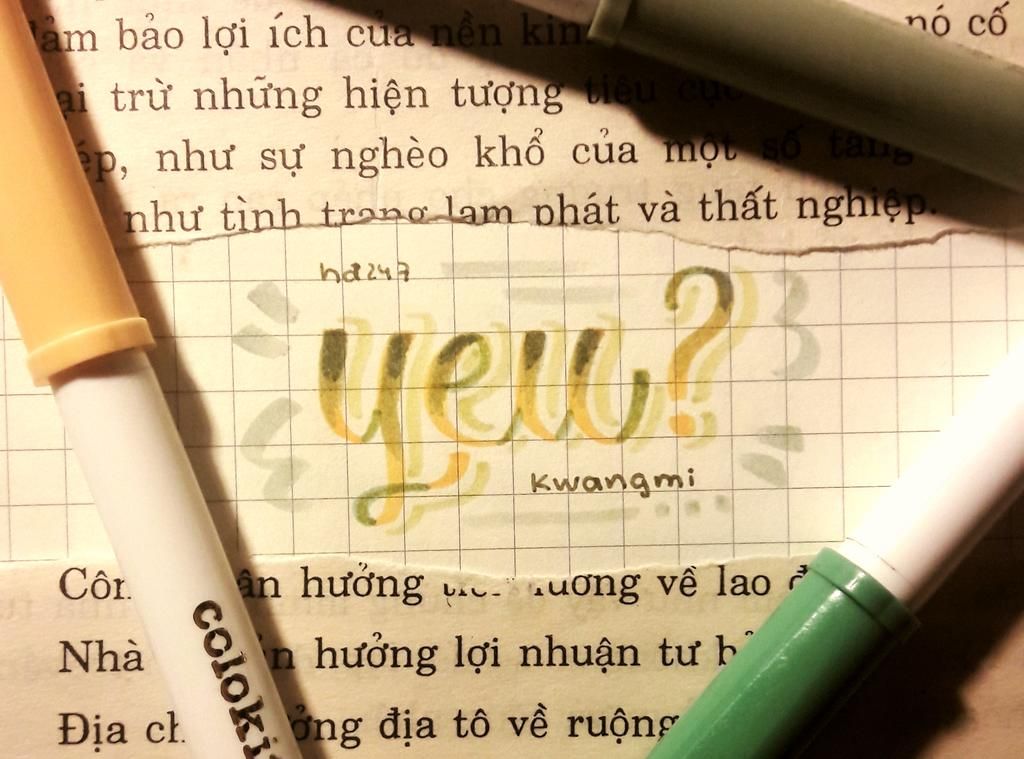 đảm bảo lợi ích của nền kin nó cố
trừ những hiện tượng tiêu cực
như sự nghèo khổ của một số tầng
như tình trạng lạm phát và thất nghiệp.
hd247
yew?
kwangmi
hưởng tiền lương về lao
Nhà hưởng lợi nhuận tư
Địa địa tô về ruộng
coloki